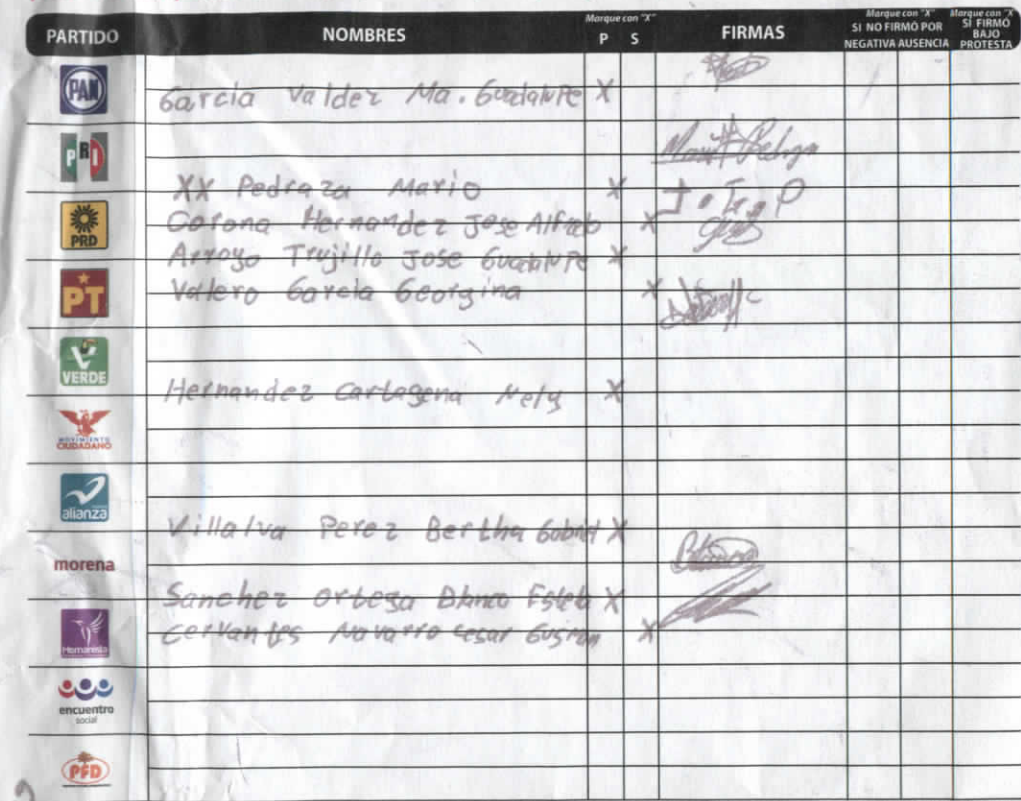 Marque con "X" Marque con "X" Marque con "X"
PARTIDO NOMBRES P S FIRMAS SI NO FIRMÓ POR NEGATIVA AUSENCIA SÍ FIRMÓ BAJO PROTESTA
PAN
Garcia Valdez Ma. Guadalupe X
PRI
XX Pedraza Mario X
PRD
Corona Hernandez Jose Alfredo X
Arroyo Trujillo Jose Guadalupe X
PT
Valero Garcia Georgina X
VERDE
Hernandez Cartagena Nely X
MOVIMIENTO
CIUDADANO
alianza
Villalva Perez Bertha X
morena
Sanchez Ortega Esteb X
Humanista
Cervantes Navarro Cesar X
encuentro
social
PFD